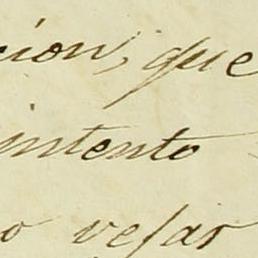 cion, que
intento
o vejar